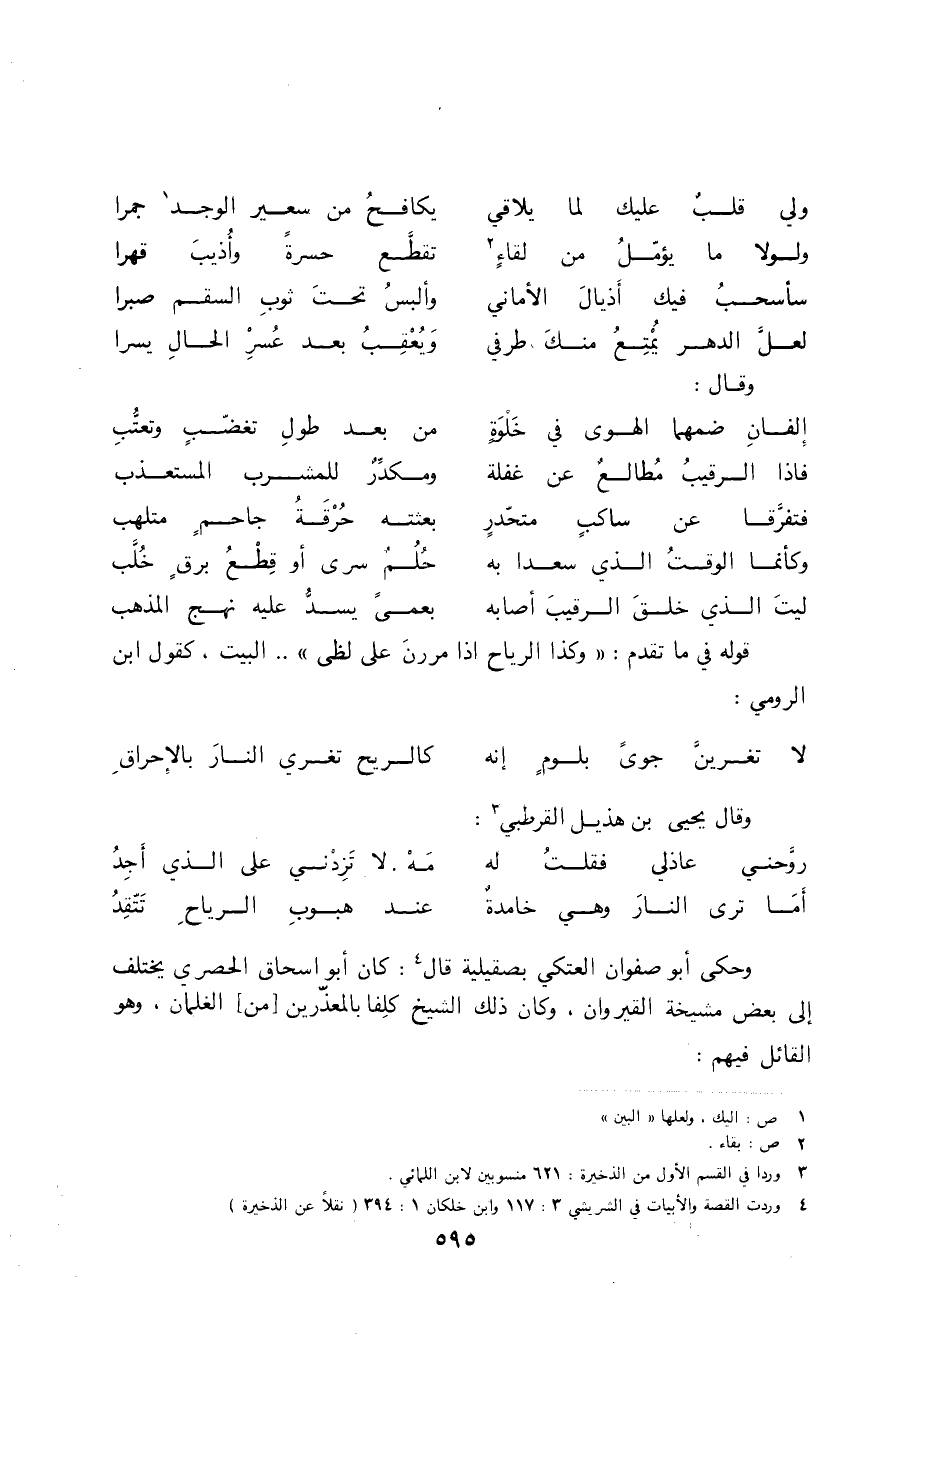 ولي قلبٌ عليك لما يلاقي يكافحُ من سعير الوجد١ جمرا
ولولا ما يؤمّلُ من لقاءٍ٢ تقطَّع حسرةً وأُذيبَ قهرا
سأسحبُ فيك أذيالَ الأماني وألبسُ تحتَ ثوبِ السقم صبرا
لعلَّ الدهر يُمْتِعُ منكَ طرفي وَيُعْقِبُ بعد عُسرْ الحالِ يسرا
وقال :
إلفانِ ضمها الهوى في خَلْوَةٍ من بعد طولِ تغضّبٍ وتعتُّبِ
فاذا الرقيبُ مُطالعٌ عن غفلة ومكدِّرٌ للمشرب المستعذب
فتفرَّقا عن ساكبٍ متحدّرٍ بعثته حُرْقَةُ جاحمٍ متلهب
وكأنما الوقتُ الذي سعدا به حُلُمٌ سرى أو قِطْعُ برقٍ خُلَّب
ليتَ الذي خلقَ الرقيبَ أصابه بعمىً يسدُّ عليه نهج المذهب
قوله في ما تقدم : « وكذا الرياح اذا مررنَ على لظى » .. البيت ، كقول ابن
الرومي :
لا تغرينَّ جوىً بلومٍ إنه كالريح تغري النارَ بالإحراقِ
وقال يحيى بن هذيل القرطبي٣ :
روَّحني عاذلي فقلتُ له مَهْ . لا تَزِدْني على الذي أجِدُ
أمَا ترى النارَ وهي خامدةٌ عند هبوبِ الرياحِ تَتَّقِدُ
وحكى أبو صفوان العتكي بصقيلية قال٤ : كان أبو اسحاق الحصري يختلف
إلى بعض مشيخة القيروان ، وكان ذلك الشيخ كلِفا بالمعذّرين [من] الغلمان ، وهو
القائل فيهم :
١ ص : اليك ، ولعلها « البين »
٢ ص : بقاء .
٣ وردا في القسم الأول من الذخيرة : ٦٢١ منسوبين لابن اللمائي .
٤ وردت القصة والأبيات في الشريشي ٣ : ١١٧ وابن خلكان ١ : ٣٩٤ ( نقلاً عن الذخيرة )
٥٩٥